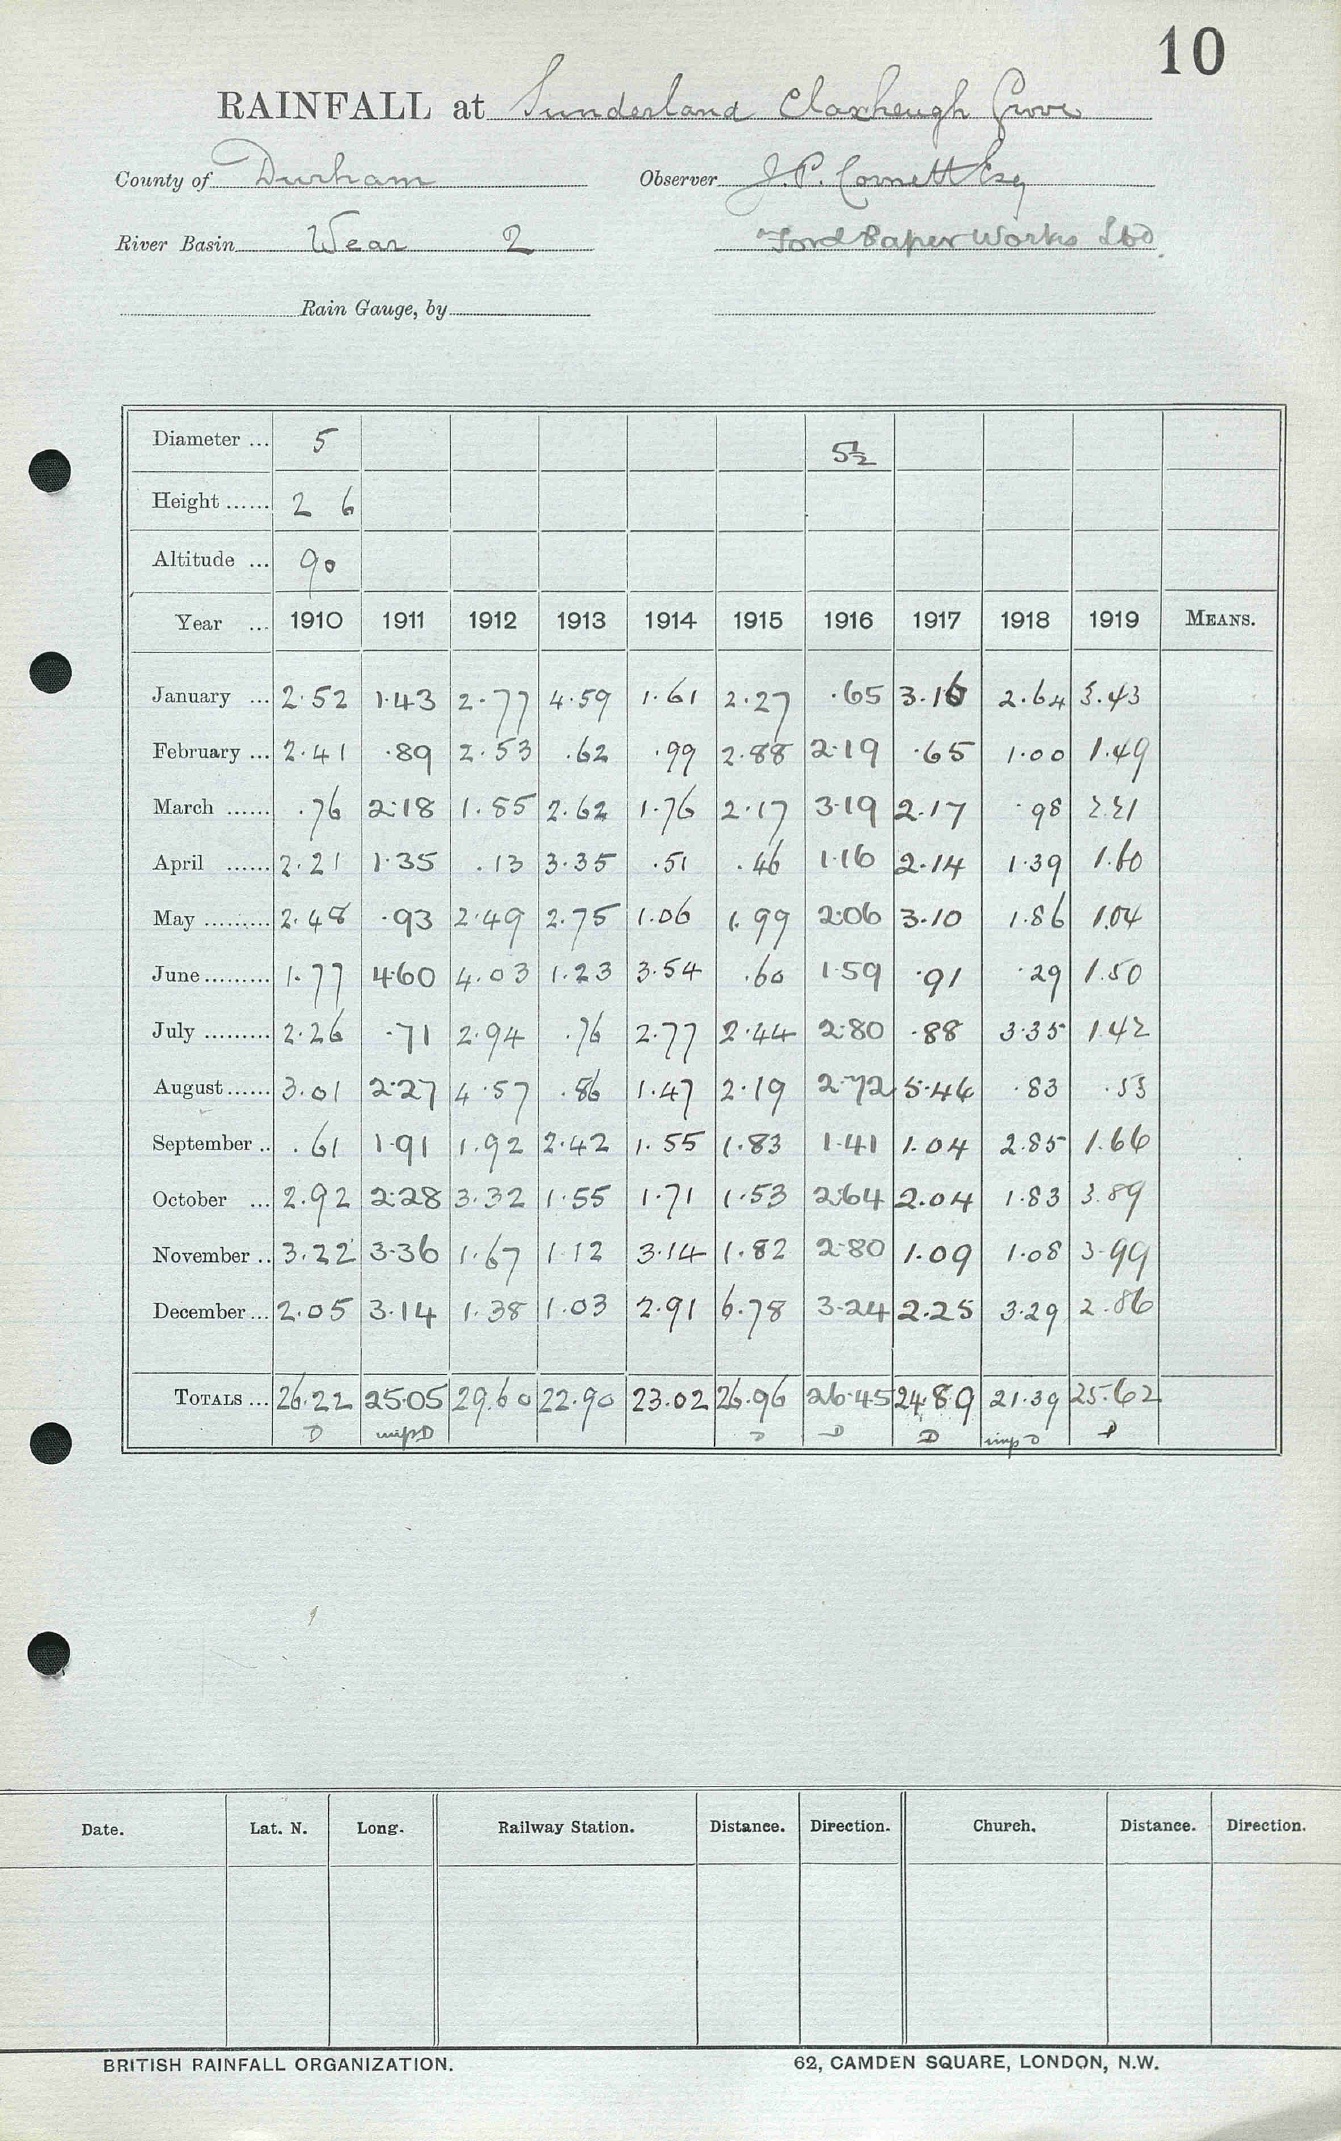 10
RAINFALL at Sunderland Claxheugh Grove
County of Durham Observer J. P. Cornett Esq
River Basin Wear 2 Ford Paper Works Ltd.
Rain Gauge, by
Diameter ... 5 5½
Height ...... 2 6
Altitude ... 90
Year ... 1910 1911 1912 1913 1914 1915 1916 1917 1918 1919 MEANS.
January ... 2.52 1.43 2.77 4.59 1.61 2.27 .65 3.16 2.64 3.43
February ... 2.41 .89 2.53 .62 .99 2.88 2.19 .65 1.00 1.49
March ...... .76 2.18 1.85 2.62 1.76 2.17 3.19 2.17 .98 2.21
April ...... 2.21 1.35 .13 3.35 .51 .46 1.16 2.14 1.39 1.60
May ......... 2.48 .93 2.49 2.75 1.06 1.99 2.06 3.10 1.86 1.04
June ......... 1.77 4.60 4.03 1.23 3.54 .60 1.59 .91 .29 1.50
July ......... 2.26 .71 2.94 .76 2.77 2.44 2.80 .88 3.35 1.42
August ...... 3.01 2.27 4.57 .86 1.47 2.19 2.72 5.46 .83 .53
September .. .61 1.91 1.92 2.42 1.55 1.83 1.41 1.04 2.85 1.66
October ... 2.92 2.28 3.32 1.55 1.71 1.53 2.64 2.04 1.83 3.89
November .. 3.22 3.36 1.67 1.12 3.14 1.82 2.80 1.09 1.08 3.99
December ... 2.05 3.14 1.38 1.03 2.91 6.78 3.24 2.25 3.29 2.86
TOTALS ... 26.22 25.05 29.60 22.90 23.02 26.96 26.45 24.89 21.39 25.62
D imp D D D D imp D D
Date. Lat. N. Long. Railway Station. Distance. Direction. Church. Distance. Direction.
BRITISH RAINFALL ORGANIZATION. 62, CAMDEN SQUARE, LONDON, N.W.